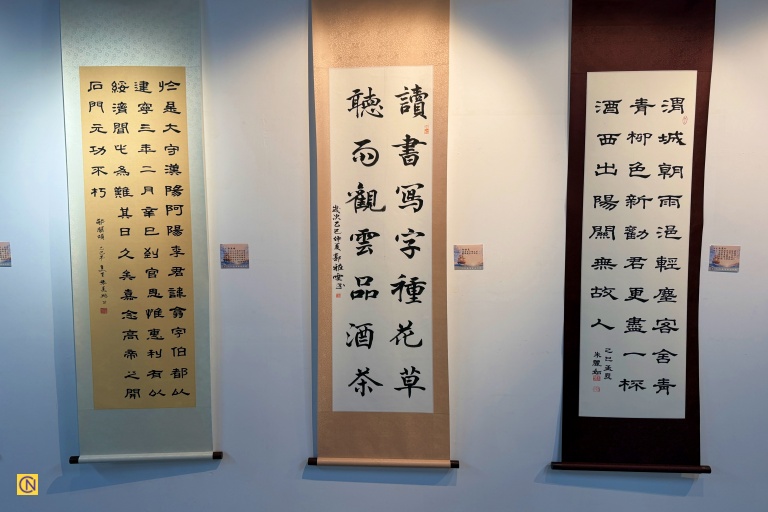 渭城朝雨浥輕塵客舍青
青柳色新勸君更盡一杯
酒西出陽關無故人
乙巳孟夏
讀書寫字種花草
聽雨觀雲品酒茶
歲次乙巳仲夏
於是大守漢陽阿陽李君諱翕字伯都以
建寧三年二月辛巳到官思惟惠利有以
綏濟聞此為難其日久矣嘉念高帝之開
石門元功不朽
郙閣頌